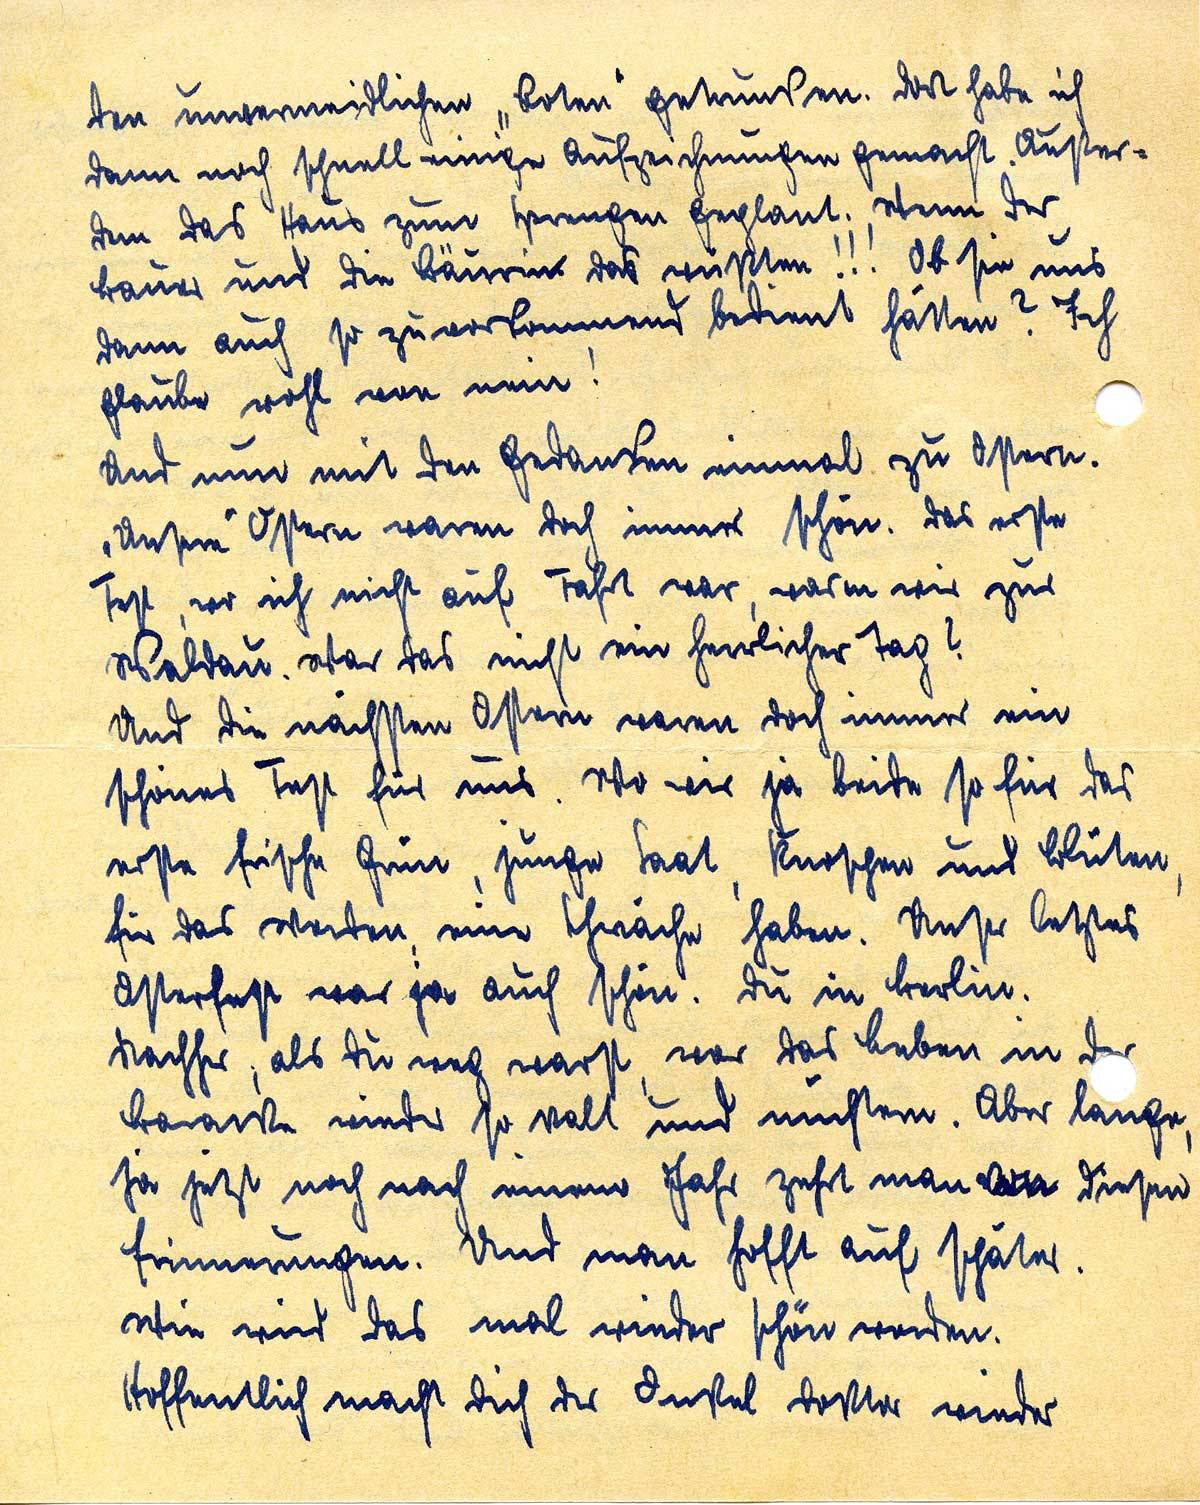 den unvermeidlichen „Roten“ getrunken. Dort habe ich
dann noch schnell einige Aufzeichnungen gemacht. Außer-
dem das Haus zum Sprengen geplant. Wenn der
Bauer und die Bäurin das wüßten!!! Ob sie uns
dann auch so zuvorkommend bedient hätten? Ich
glaube wohl von nein!
Und nun mit den Gedanken einmal zu Ostern.
„Unsere“ Ostern waren doch immer schön. Das erste
Fest, wo ich nicht auf Fahrt war, waren wir zur
Waldau. War das nicht ein herrlicher Tag?
Und die nächsten Ostern waren doch immer ein
schönes Fest für uns. Wo wir ja beide so für das
erste frische Grün, junge Saat, Knospen und Blüten,
für das Werden, eine Schwäche haben. Unser letztes
Osterfest war ja auch schön. Du in Berlin.
Nachher, als Du weg warst, war das Leben in der
Baracke wieder so kalt und nüchtern. Aber lange,
ja jetzt noch nach einem Jahr zehrt man von diesen
Erinnerungen. Und man hofft auf später.
Wie wird das mal wieder schön werden.
Hoffentlich macht Dich der Onkel Doktor wieder